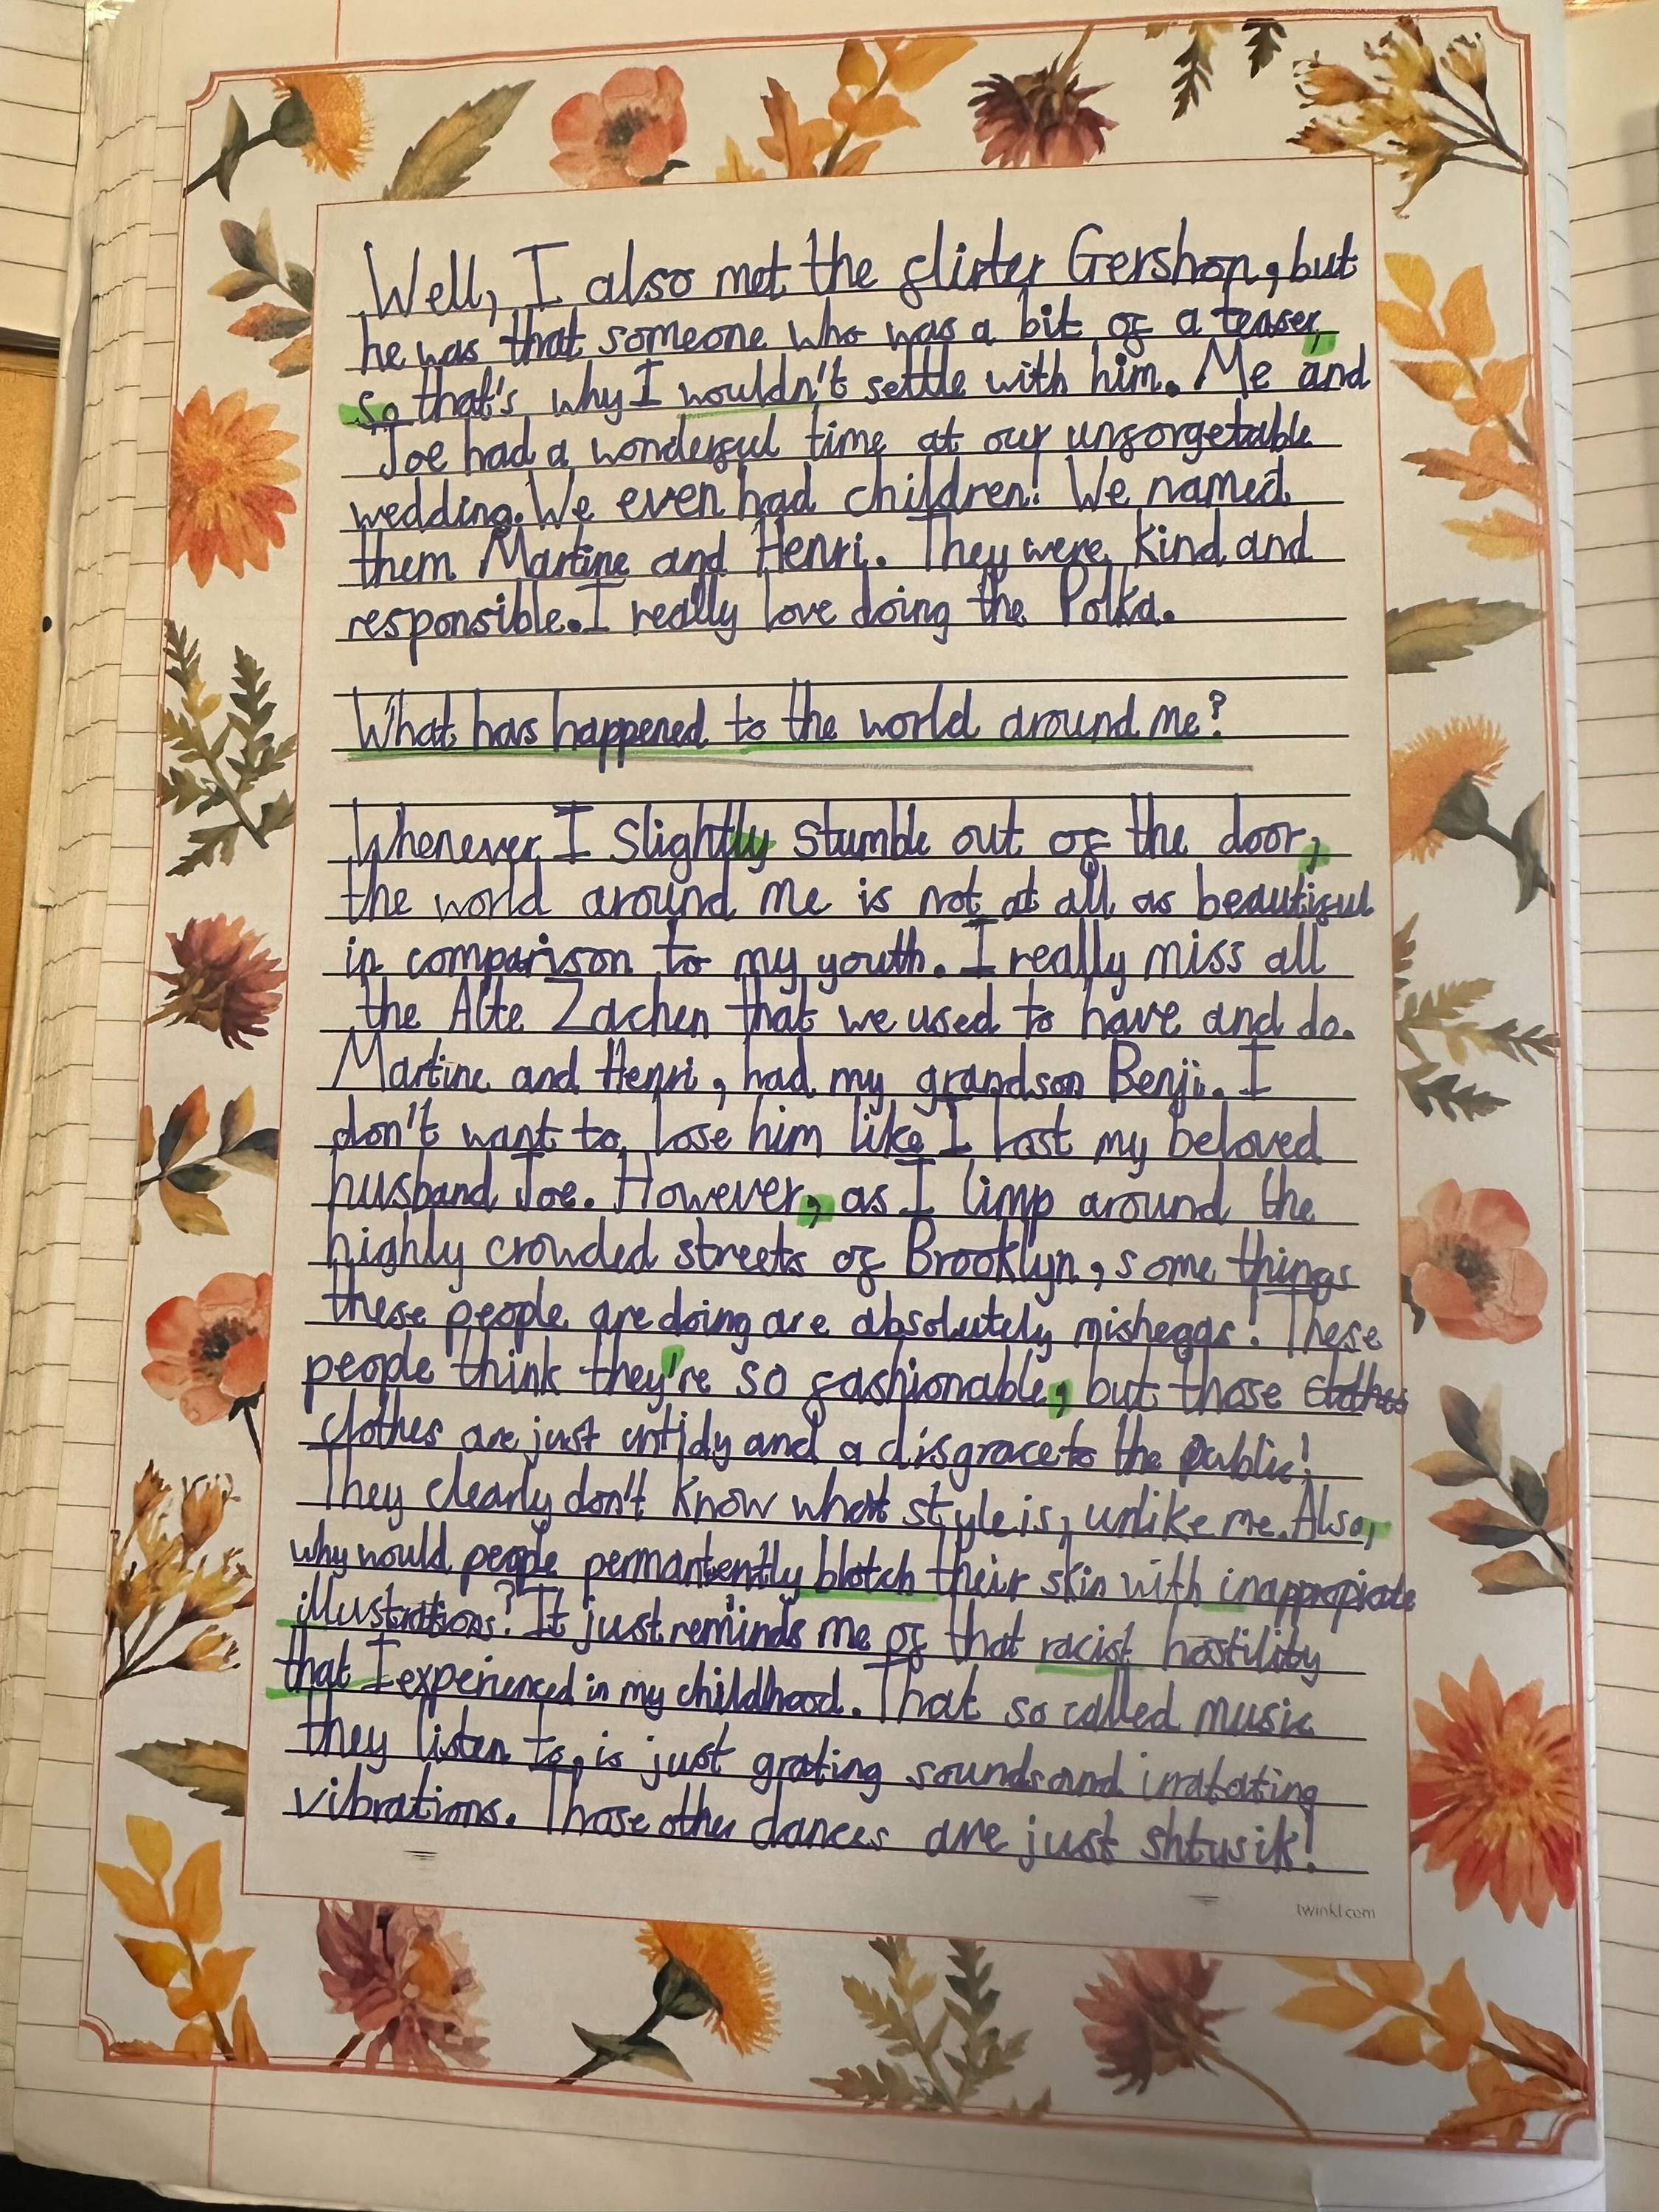 Well, I also met the flirter Gershon, but
he was that someone who was a bit of a teaser,
so that's why I wouldn't settle with him. Me and
Joe had a wonderful time at our unforgetable
wedding. We even had children! We named
them Martine and Henri. They were kind and
responsible. I really love doing the Polka.
What has happened to the world around me?
Whenever I slightly stumble out of the door,
the world around me is not at all as beautiful
in comparison to my youth. I really miss all
the Alte Zachen that we used to have and do.
Martine and Henri, had my grandson Benji. I
don't want to lose him like I lost my beloved
husband Joe. However, as I limp around the
highly crowded streets of Brooklyn, some things
these people are doing are absolutely misheggs! These
people think they're so fashionable, but those clothes
clothes are just untidy and a disgrace to the public!
They clearly don't know what style is, unlike me. Also,
why would people permantently blotch their skin with inappropiate
illustrations? It just reminds me of that racist hostility
that I experienced in my childhood. That so called music
they listen to, is just grating sounds and irratating
vibrations. Those other dances are just shtusik!
twinkl.com